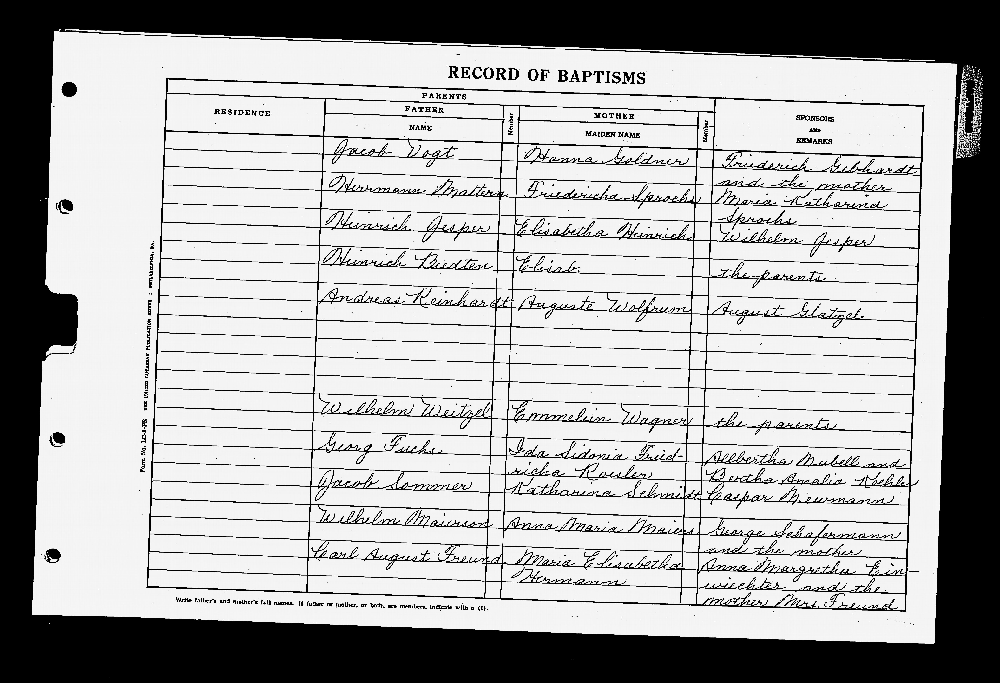 RECORD OF BAPTISMS
PARENTS
RESIDENCE
FATHER
NAME
Member
MOTHER
MAIDEN NAME
Member
SPONSORS
AND
REMARKS
Jacob Vogt
Hanna Goldner
Friederich Gebhardt
and the mother
Herrmann Mattern
Friedericha Sprochs
Maria Katharind
Sprochs
Heinrich Jesper
Elisabetha Heinrichs
Wilhelm Jesper
Heinrich Buedten
Elisab.
the parents
Andreas Reinhardt
Auguste Wolfrum
August Glatzel
Wilhelm Weitzel
Emmelein Wagner
the parents
Georg Fuchs
Ida Sidonia Fried-
ricka Roesler
Allbertha Mabell and
Bertha Amalia Koehler
Jacob Sommer
Katharina Schmidt
Caspar Newmann
Wilhelm Maierson
Anna Maria Maiers
George Schafermann
and the mother
Carl August Freund
Maria Elisabetha
Hermann
Anna Margretha Ein-
wiechter and the
mother Mrs. Freund
Write father's and mother's full names. If father or mother, or both, are members, indicate with a (X).